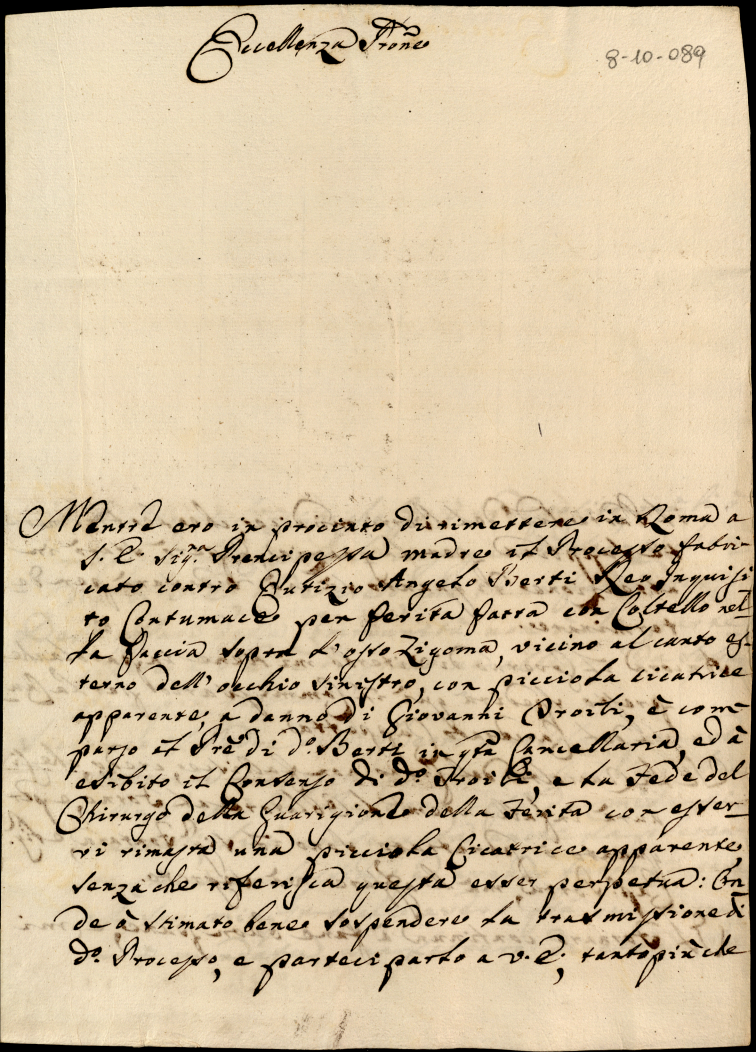 Eccellenza Prone
8-10-089
Mentre ero in procinto di rimettere in Roma a
S. E. Sig.ra Prencipessa madre il Processo fabri-
cato contro Eutizio Angelo Berti Reo Inquisi
to Contumace per ferita fatta con Coltello nel-
la faccia sopra l'osso Zigoma, vicino al canto es-
terno dell'occhio sinistro, con picciola cicatrice
apparente, a danno di Giovanni Troili, è com-
parso il Pre di d.o Berti in qta Cancellaria, ed à
esibito il Consenso di d.o Troili, e la Fede del
Chirurgo della Guarigione della Ferita con esser-
vi rimasta una picciola Cicatrice apparente
senza che riferisca questa esser perpetua: On
de ò stimato bene sospendere la trasmissione di
d.o Processo, e parteciparlo a V. E., tanto più che